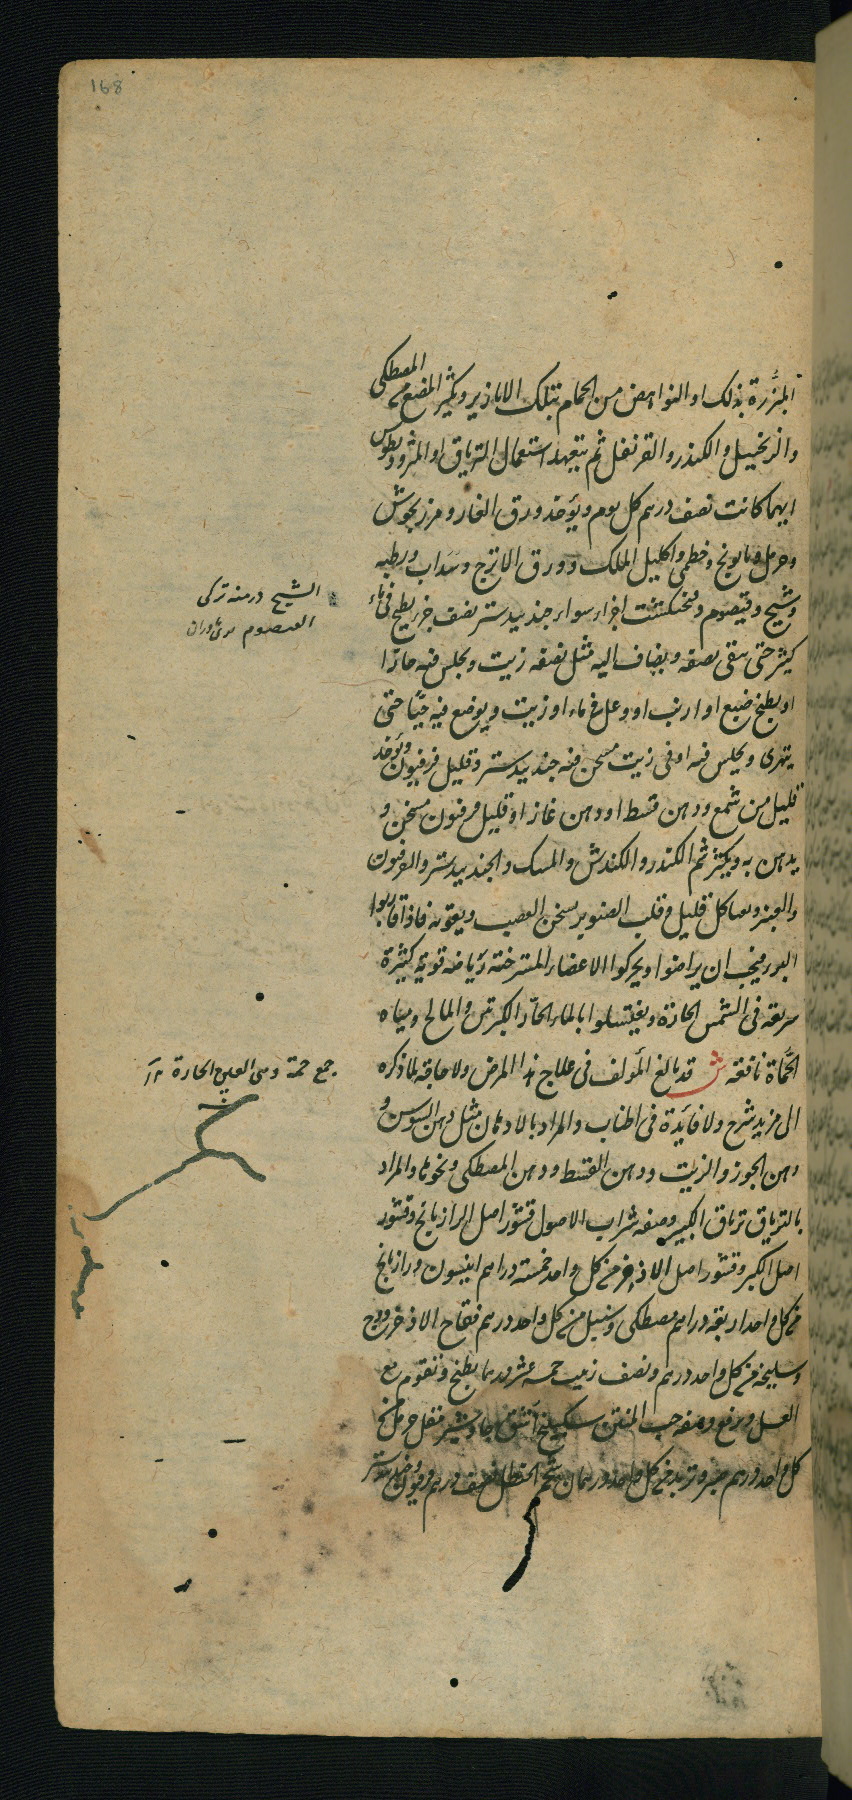 168
المبزرة بذلك او النواهض من الحمام بتلك الابازير ويكثر المضغ من المصطكى
والزنجبيل والكندر والقرنفل ثم يتعهد استعمال الترياق او المثروديطوس
ايهما كانت نصف درهم كل يوم ويؤخذ ورق الغار ومرزنجوش
وحرمل وبابونج وخطمى واكليل الملك وورق الاترج وسداب ورطبه
وشيح وقيصوم وفنجنكشت اجزاء سواء جندبيدستر نصف جزء يطبخ فى ماء
كثير حتى يبقى نصفه ويضاف اليه مثل نصفه زيت ويجلس فيه حارا
او يطبخ ضبع او ارنب او وعل فى ماء او زيت ويوضع فيه حيا حتى
يتهرى ويجلس فيه او فى زيت مسخن فيه جندبيدستر وقليل فربيون ويؤخذ
قليل من شمع ودهن قسط او دهن غار او قليل فربيون مسخن و
يدهن به ويكثر شم الكندر والكندش والمسك والجندبيدستر والفربيون
والعنبر و كل قليل قلب الصنوبر يسخن العصب ويقويه فاذا قاربوا
البرء فيجب ان يراضوا ويحركوا الاعضاء المسترخية رياضة قوية كثيرة
سريعة فى الشمس الحارة ويغتسلوا بالماء الحار الكبريتى والمالح ومياه
الحمأة نافعة ش قد بالغ المؤلف فى علاج هذا المرض ولا حاجة لما ذكره
الى مزيد شرح ولا فائدة فى اطناب والمراد بالادهان مثل دهن السوسن و
دهن الجوز والزيت ودهن القسط ودهن المصطكى ونحوها والمراد
بالترياق ترياق الكبير وصفة شراب الاصول قشور اصل الرازيانج وقشور
اصل الكبر وقشور اصل الاذخر من كل واحد خمسة دراهم انيسون ورازيانج
من كل واحد اربعة دراهم مصطكى وسنبل من كل واحد درهم فقاح الاذخر ووج
وسليخة من كل واحد درهم ونصف زبيب خمسة عشر درهما يطبخ ويقوم مع
العسل ويرفع وصفة حب المنتن سكبينج اشق جاوشير مقل حرمل من
كل واحد درهم صبر وتربد من كل واحد درهمان شحم الحنظل نصف درهم فربيون جندبيدستر
الشيح درمنه تركى
القيصوم بوى مادران
جمع حمة وهى العين الحارة ١٢